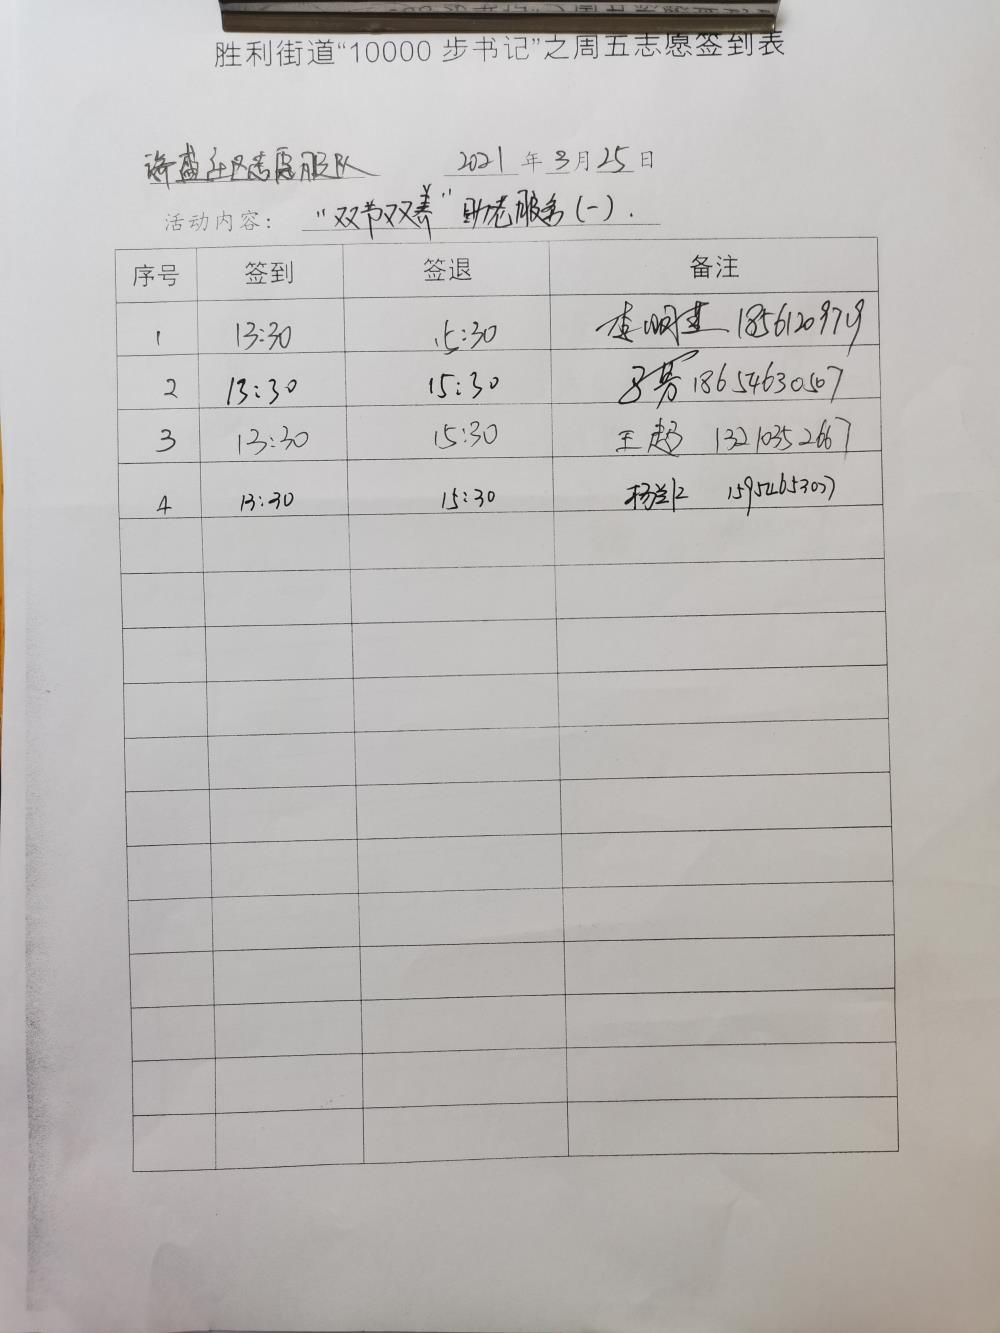 胜利街道“10000步书记”之周五志愿签到表
社区志愿服队 2021年3月25日
活动内容：“双节双养”助老服务(一).
序号 签到 签退 备注
1 13:30 15:30 李明
2 13:30 15:30 18654630507
3 13:30 15:30 王超 13210352667
4 13:30 15:30 杨 15954653077